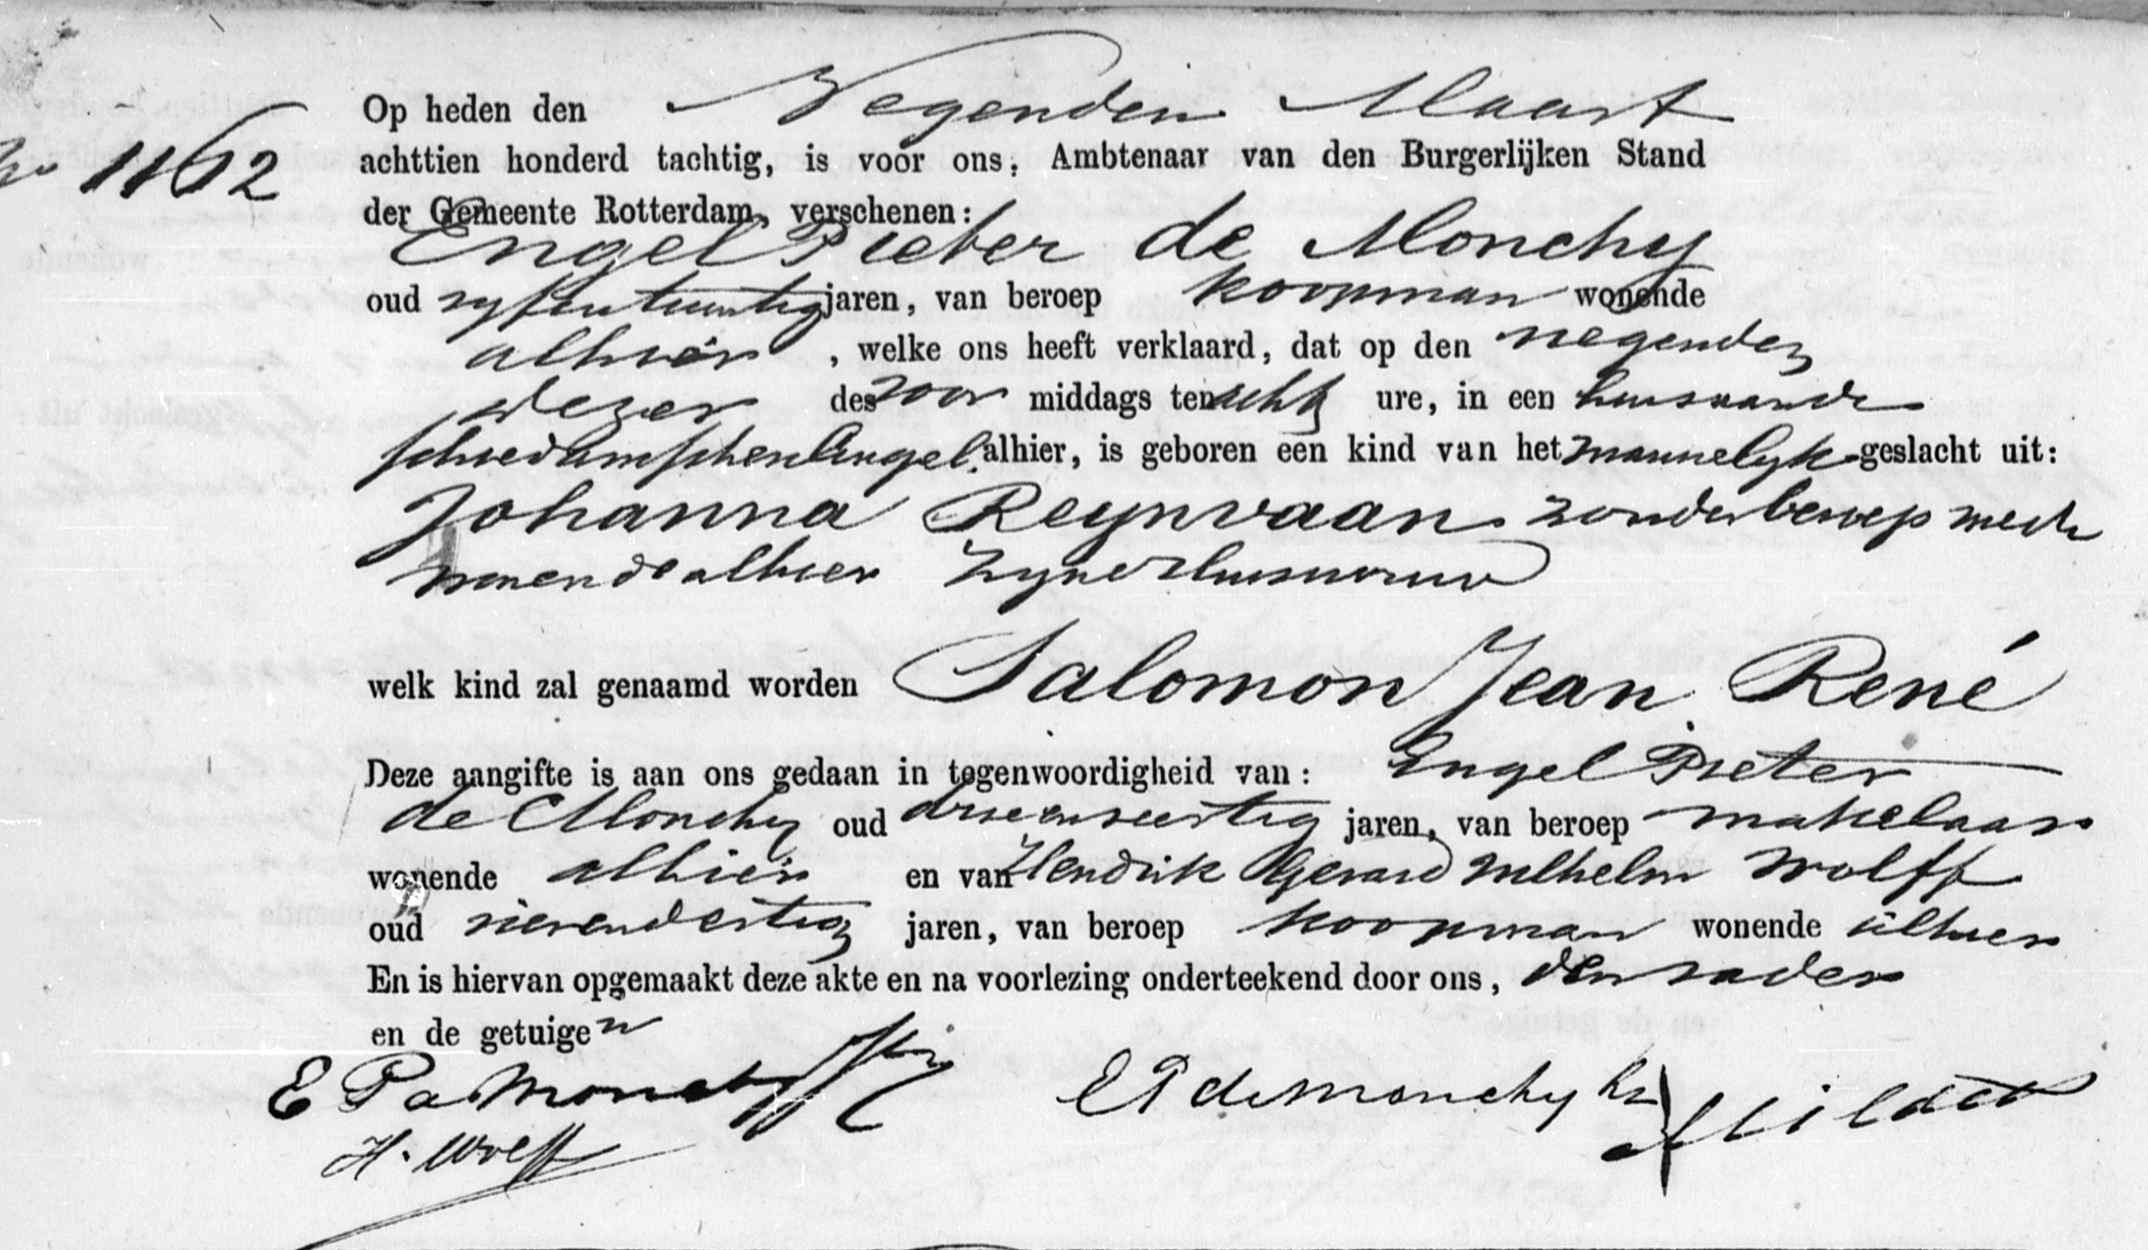 No 1162
Op heden den Negenden Maart
achttien honderd tachtig, is voor ons, Ambtenaar van den Burgerlijken Stand
der Gemeente Rotterdam, verschenen:
Engel Pieter de Monchy
oud vyfentwintig jaren, van beroep koopman wonende
alhier, welke ons heeft verklaard, dat op den negenden
dezer des voor middags ten acht ure, in een huis aan de
schiedamschensingel alhier, is geboren een kind van het mannelyk geslacht uit:
Johanna Reynvaan zonder beroep mede
wonende alhier zyne huisvrouw
welk kind zal genaamd worden Salomon Jean René
Deze aangifte is aan ons gedaan in tegenwoordigheid van: Engel Pieter
de Monchy oud drieenveertig jaren, van beroep makelaar
wonende alhier en van Hendrik Gerard Wilhelm Wolff
oud vierendertig jaren, van beroep koopman wonende alhier
En is hiervan opgemaakt deze akte en na voorlezing onderteekend door ons, den vader
en de getuigen
E P de Monchy E P de Monchy
H. Wolff